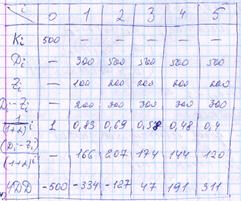 i 0 1 2 3 4 5
Ki 500 — — — — —
Di — 300 500 500 500 500
Zi — 100 200 200 200 200
Di-Zi — 200 300 300 300 300
1/(1+r)^i 1 0,83 0,69 0,58 0,48 0,4
(Di-Zi)/(1+r)^i — 166 207 174 144 120
ЧДД -500 -334 -127 47 191 311